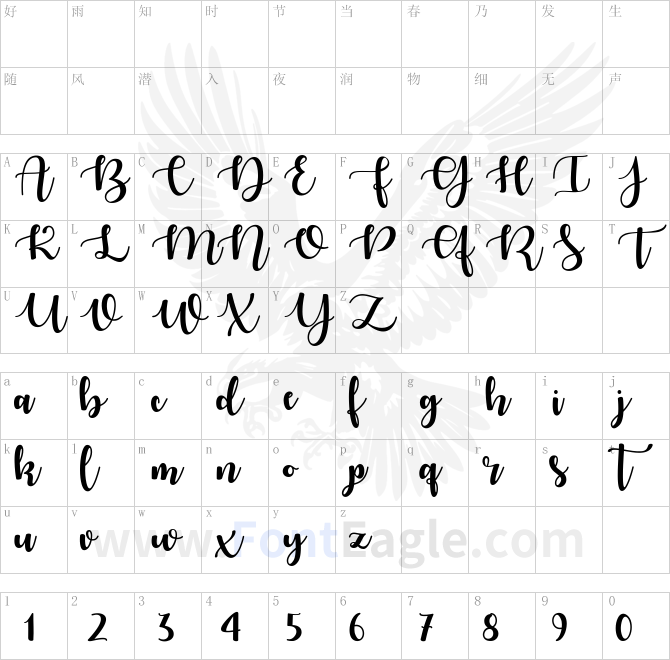 好 雨 知 时 节 当 春 乃 发 生
随 风 潜 入 夜 润 物 细 无 声
A B C D E F G H I J
A B C D E F G H I J
K L M N O P Q R S T
K L M N O P Q R S T
U V W X Y Z
U V W X Y Z
a b c d e f g h i j
a b c d e f g h i j
k l m n o p q r s t
k l m n o p q r s T
u v w x y z
u v w X y z
www.FontEagle.com
1 2 3 4 5 6 7 8 9 0
1 2 3 4 5 6 7 8 9 0